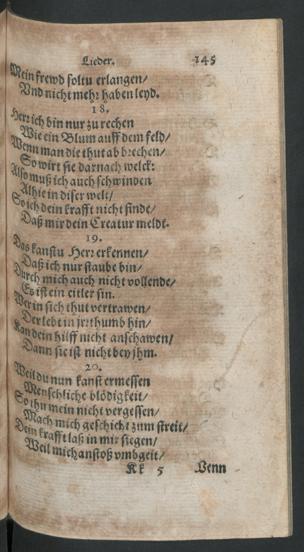 Lieder. 145
Mein frewd soltu erlangen/
Vnd nicht mehr haben leyd.
18.
Herr ich bin nur zu rechen
Wie ein Blum auff dem feld/
Wenn man die thut abbrechen/
So wirt sie darnach welck:
Also muß ich auch schwinden
Alhie in diser welt/
So ich dein krafft nicht finde/
Daß mir dein Creatur meldt.
19.
Das kanstu Herr erkennen/
Daß ich nur staube bin/
Durch mich auch nicht vollende/
Es ist ein eitler sin.
Wer in sich thut vertrawen/
Der lebt in jrrthumb hin/
Kan dein hilff nicht anschawen/
Dann sie ist nicht bey jhm.
20.
Weil du nun kanst ermessen
Menschliche blödigkeit/
So thu mein nicht vergessen/
Mach mich geschickt zum streit/
Dein krafft laß in mir siegen/
Weil mich anstoß vmbgeit/
Kk 5 Wenn